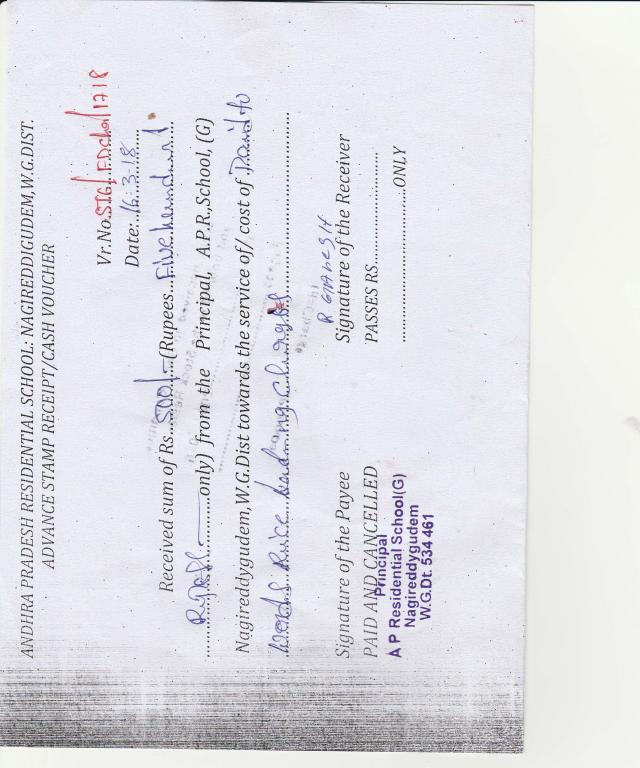 ANDHRA PRADESH RESIDENTIAL SCHOOL: NAGIREDDIGUDEM,W.G.DIST.
ADVANCE STAMP RECEIPT/CASH VOUCHER
Vr.No.
Date:..16.3.18
Received sum of Rs..500/-...(Rupees...Five hundred
..........only) from the Principal, A.P.R,School, (G)
Nagireddygudem,W.G.Dist towards the service of/ cost of
Rice loading charges
R GANESH
Signature of the Payee Signature of the Receiver
PAID AND CANCELLED PASSES RS.....................
..............................ONLY
Principal
A P Residential School(G)
Nagireddygudem
W.G.Dt. 534 461